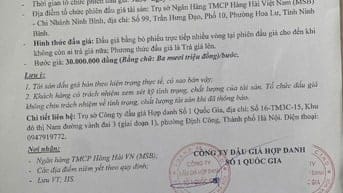 - Địa điểm tổ chức phiên đấu giá tài sản: Trụ sở Ngân Hàng TMCP Hàng Hải Việt Nam (MSB)
- Chi Nhánh Ninh Bình, địa chỉ: Số 99, Trần Hưng Đạo, Phố 10, Phường Hoa Lư, Tỉnh Ninh
Bình.
- Hình thức đấu giá: Đấu giá bằng bỏ phiếu trực tiếp nhiều vòng tại phiên đấu giá cho đến khi
không còn ai trả giá nữa; Phương thức đấu giá là Trả giá lên.
- Bước giá: 30.000.000 đồng (Bằng chữ: Ba mươi triệu đồng)/bước.
Lưu ý:
1. Tài sản đấu giá bán theo hiện trạng thực tế, có sao bán vậy;
2. Khách hàng có trách nhiệm xem xét kỹ tình trạng, chất lượng của tài sản. Tổ chức đấu giá không
chịu trách nhiệm về tình trạng, chất lượng tài sản khi đã thông báo.
Chi tiết liên hệ: Trụ sở Công ty đấu giá Hợp danh Số 1 Quốc Gia, địa chỉ: Số 16-TM3C-15, Khu
đô thị Nam đường vành đai 3 (giai đoạn 1), phường Định Công, Thành phố Hà Nội. Điện thoại:
0947919772.
Nơi nhận:
- Ngân hàng TMCP Hàng Hải VN (MSB);
- Các địa điểm niêm yết theo quy định;
- Lưu VT; HS
CÔNG TY ĐẤU GIÁ HỢP DANH
SỐ 1 QUỐC GIA